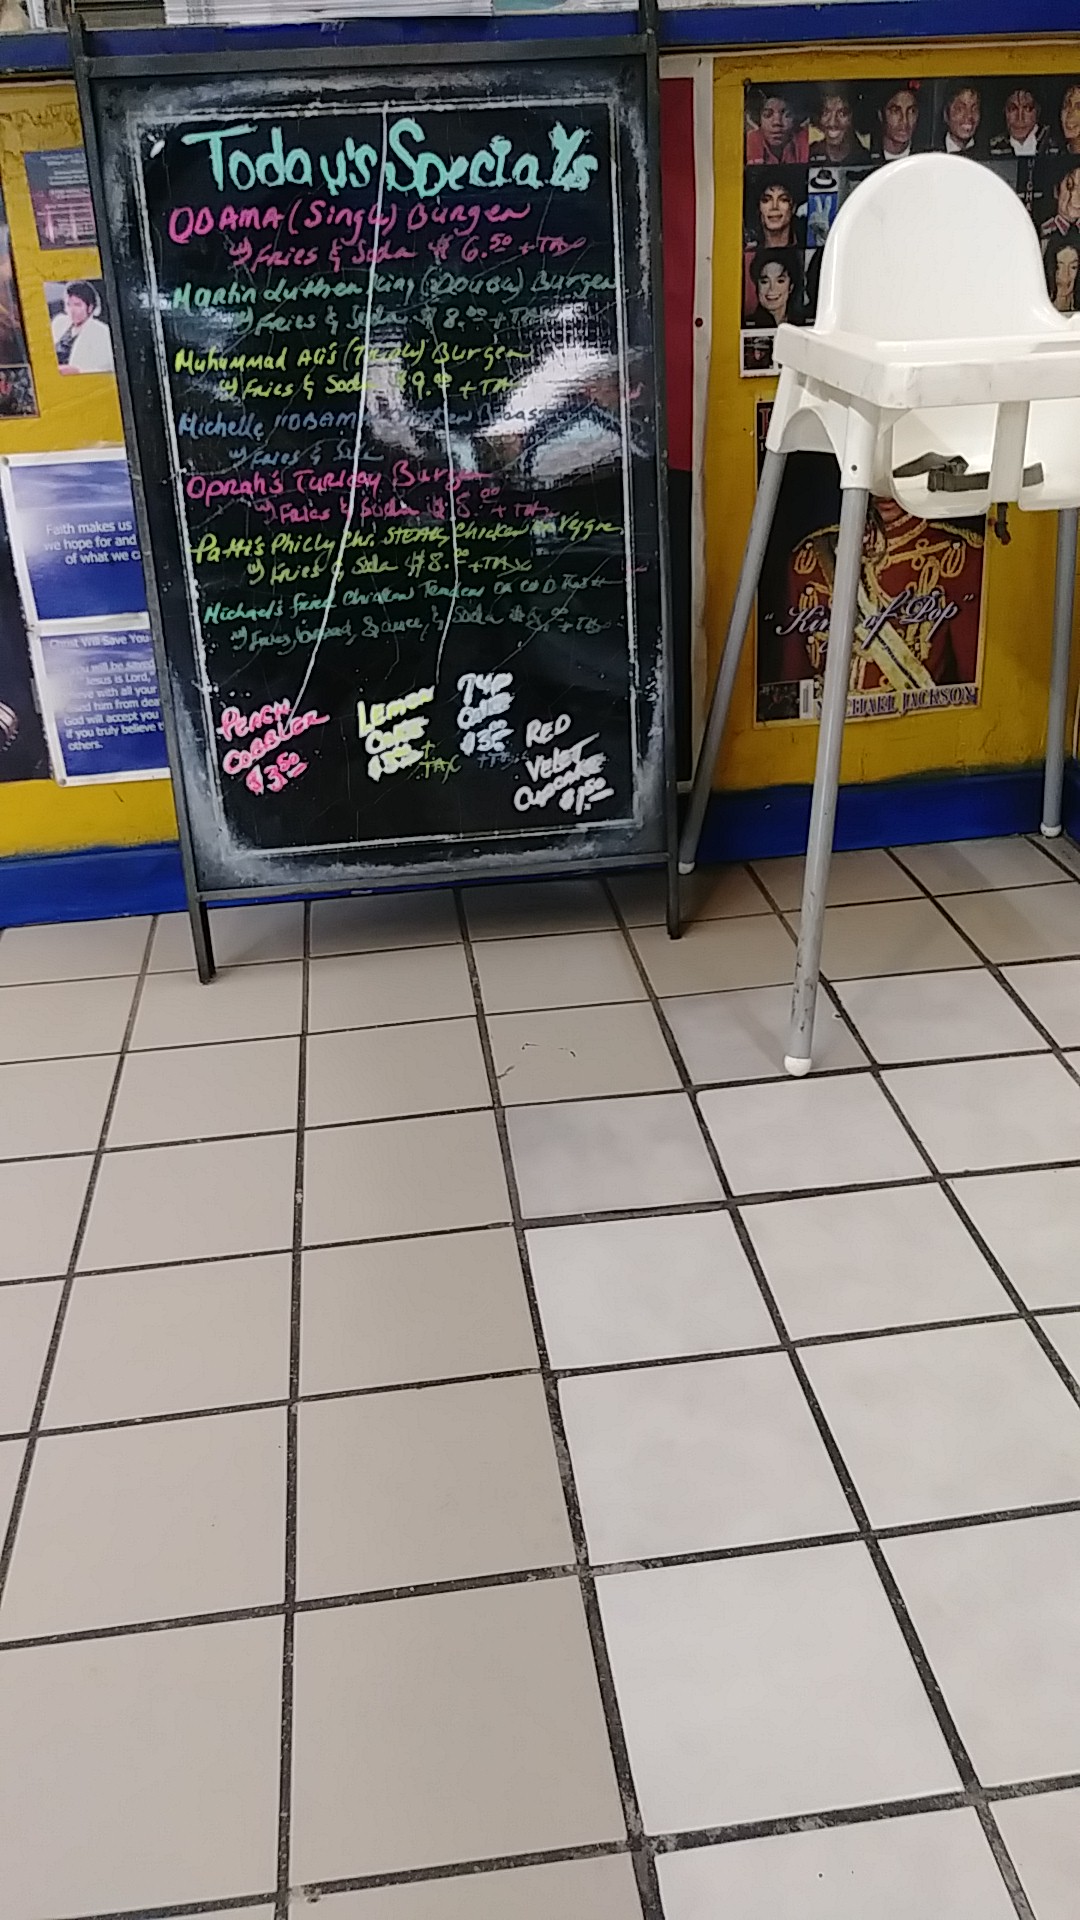 Today's Specials
OBAMA (Single) Burger
w/ Fries & Soda $6.50 + TAX
Martin Luther King (Double) Burger
w/ Fries & Soda $8.00 + TAX
Muhammad Ali's (Triple) Burger
w/ Fries & Soda $9.00 + TAX
Michelle OBAMA
w/ Fries &
Oprah's Turkey Burger
w/ Fries & Soda $8.00 + TAX
Patti's Philly Chz. STEAK, Chicken or Veggie
w/ Fries & Soda $8.00 + TAX
Michael's Fried Chicken Tenders or
w/ Fries, bread, Sauce, & Soda
PEACH
COBBLER
$3.50
LEMON
CAKE
+
TAX
7up
CAKE
RED
VELVET
Cupcake
$1.50
Faith makes us
we hope for and
of what we c
Christ Will Save You
you will be saved
Jesus is Lord,"
ieve with all your
sed him from dea
God will accept you
if you truly believe t
others.
"King of Pop"
MICHAEL JACKSON